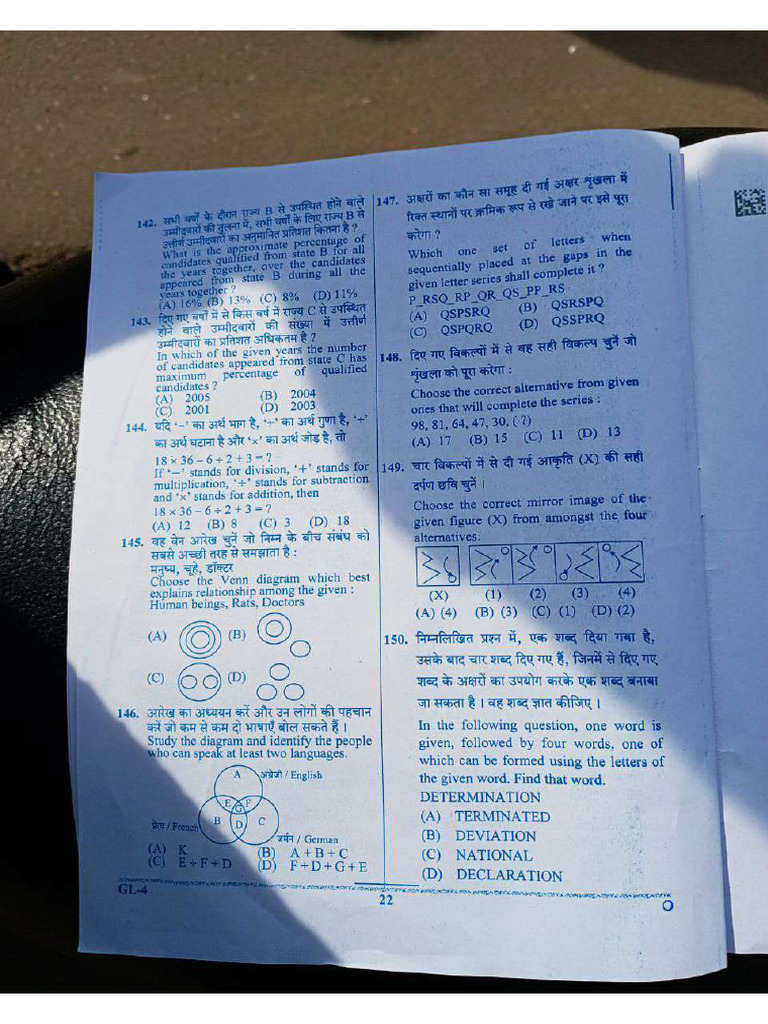 142. सभी वर्षों के दौरान राज्य B से उपस्थित होने वाले
उम्मीदवारों की तुलना में, सभी वर्षों के लिए राज्य B से
उत्तीर्ण उम्मीदवारों का अनुमानित प्रतिशत कितना है ?
What is the approximate percentage of
candidates qualified from state B for all
the years together, over the candidates
appeared from state B during all the
years together ?
(A) 16% (B) 13% (C) 8% (D) 11%
143. दिए गए वर्षों में से किस वर्ष में राज्य C से उपस्थित
होने वाले उम्मीदवारों की संख्या में उत्तीर्ण
उम्मीदवारों का प्रतिशत अधिकतम है ?
In which of the given years the number
of candidates appeared from state C has
maximum percentage of qualified
candidates ?
(A) 2005 (B) 2004
(C) 2001 (D) 2003
144. यदि '-' का अर्थ भाग है, '+' का अर्थ गुणा है, '÷'
का अर्थ घटाना है और 'x' का अर्थ जोड़ है, तो
18 × 36 – 6 ÷ 2 + 3 = ?
If '–' stands for division, '+' stands for
multiplication, '÷' stands for subtraction
and 'x' stands for addition, then
18 × 36 – 6 ÷ 2 + 3 = ?
(A) 12 (B) 8 (C) 3 (D) 18
145. वह वेन आरेख चुनें जो निम्न के बीच संबंध को
सबसे अच्छी तरह से समझाता है :
मनुष्य, चूहे, डॉक्टर
Choose the Venn diagram which best
explains relationship among the given :
Human beings, Rats, Doctors
(A) (B)
(C) (D)
146. आरेख का अध्ययन करें और उन लोगों की पहचान
करें जो कम से कम दो भाषाएँ बोल सकते हैं ।
Study the diagram and identify the people
who can speak at least two languages.
A अंग्रेजी / English
E F
G
B D C
फ्रेंच / French
जर्मन / German
(A) K (B) A + B + C
(C) E + F + D (D) F + D + G + E
147. अक्षरों का कौन सा समूह दी गई अक्षर शृंखला में
रिक्त स्थानों पर क्रमिक रूप से रखे जाने पर इसे पूरा
करेगा ?
Which one set of letters when
sequentially placed at the gaps in the
given letter series shall complete it ?
P_RSQ_RP_QR_QS_PP_RS
(A) QSPSRQ (B) QSRSPQ
(C) QSPQRQ (D) QSSPRQ
148. दिए गए विकल्पों में से वह सही विकल्प चुनें जो
शृंखला को पूरा करेगा :
Choose the correct alternative from given
ones that will complete the series :
98, 81, 64, 47, 30, ( ?)
(A) 17 (B) 15 (C) 11 (D) 13
149. चार विकल्पों में से दी गई आकृति (X) की सही
दर्पण छवि चुनें ।
Choose the correct mirror image of the
given figure (X) from amongst the four
alternatives.
(X) (1) (2) (3) (4)
(A) (4) (B) (3) (C) (1) (D) (2)
150. निम्नलिखित प्रश्न में, एक शब्द दिया गया है,
उसके बाद चार शब्द दिए गए हैं, जिनमें से दिए गए
शब्द के अक्षरों का उपयोग करके एक शब्द बनाया
जा सकता है । वह शब्द ज्ञात कीजिए ।
In the following question, one word is
given, followed by four words, one of
which can be formed using the letters of
the given word. Find that word.
DETERMINATION
(A) TERMINATED
(B) DEVIATION
(C) NATIONAL
(D) DECLARATION
GL-4
22
O